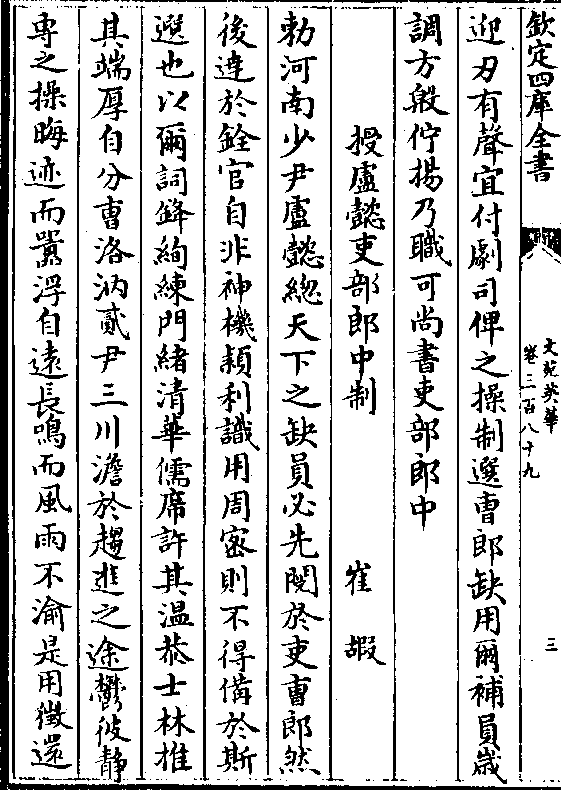 欽定四庫全書
文苑英華
卷三百八十九
三
迎刃有聲宜付劇司俾之操制選曹郎缺用爾補員歲
調方殷佇揚乃職可尚書吏部郎中
授盧懿吏部郎中制
崔嘏
勅河南少尹盧懿總天下之缺員必先閱於吏曹郎然
後達於銓官自非神機穎利識用周宻則不得備於斯
選也以爾詞鋒絢練門緒清華儒席許其温恭士林推
其端厚自分曹洛汭貳尹三川澹於趨進之途欝彼静
專之操晦迹而囂浮自遠長鳴而風雨不渝是用徵還